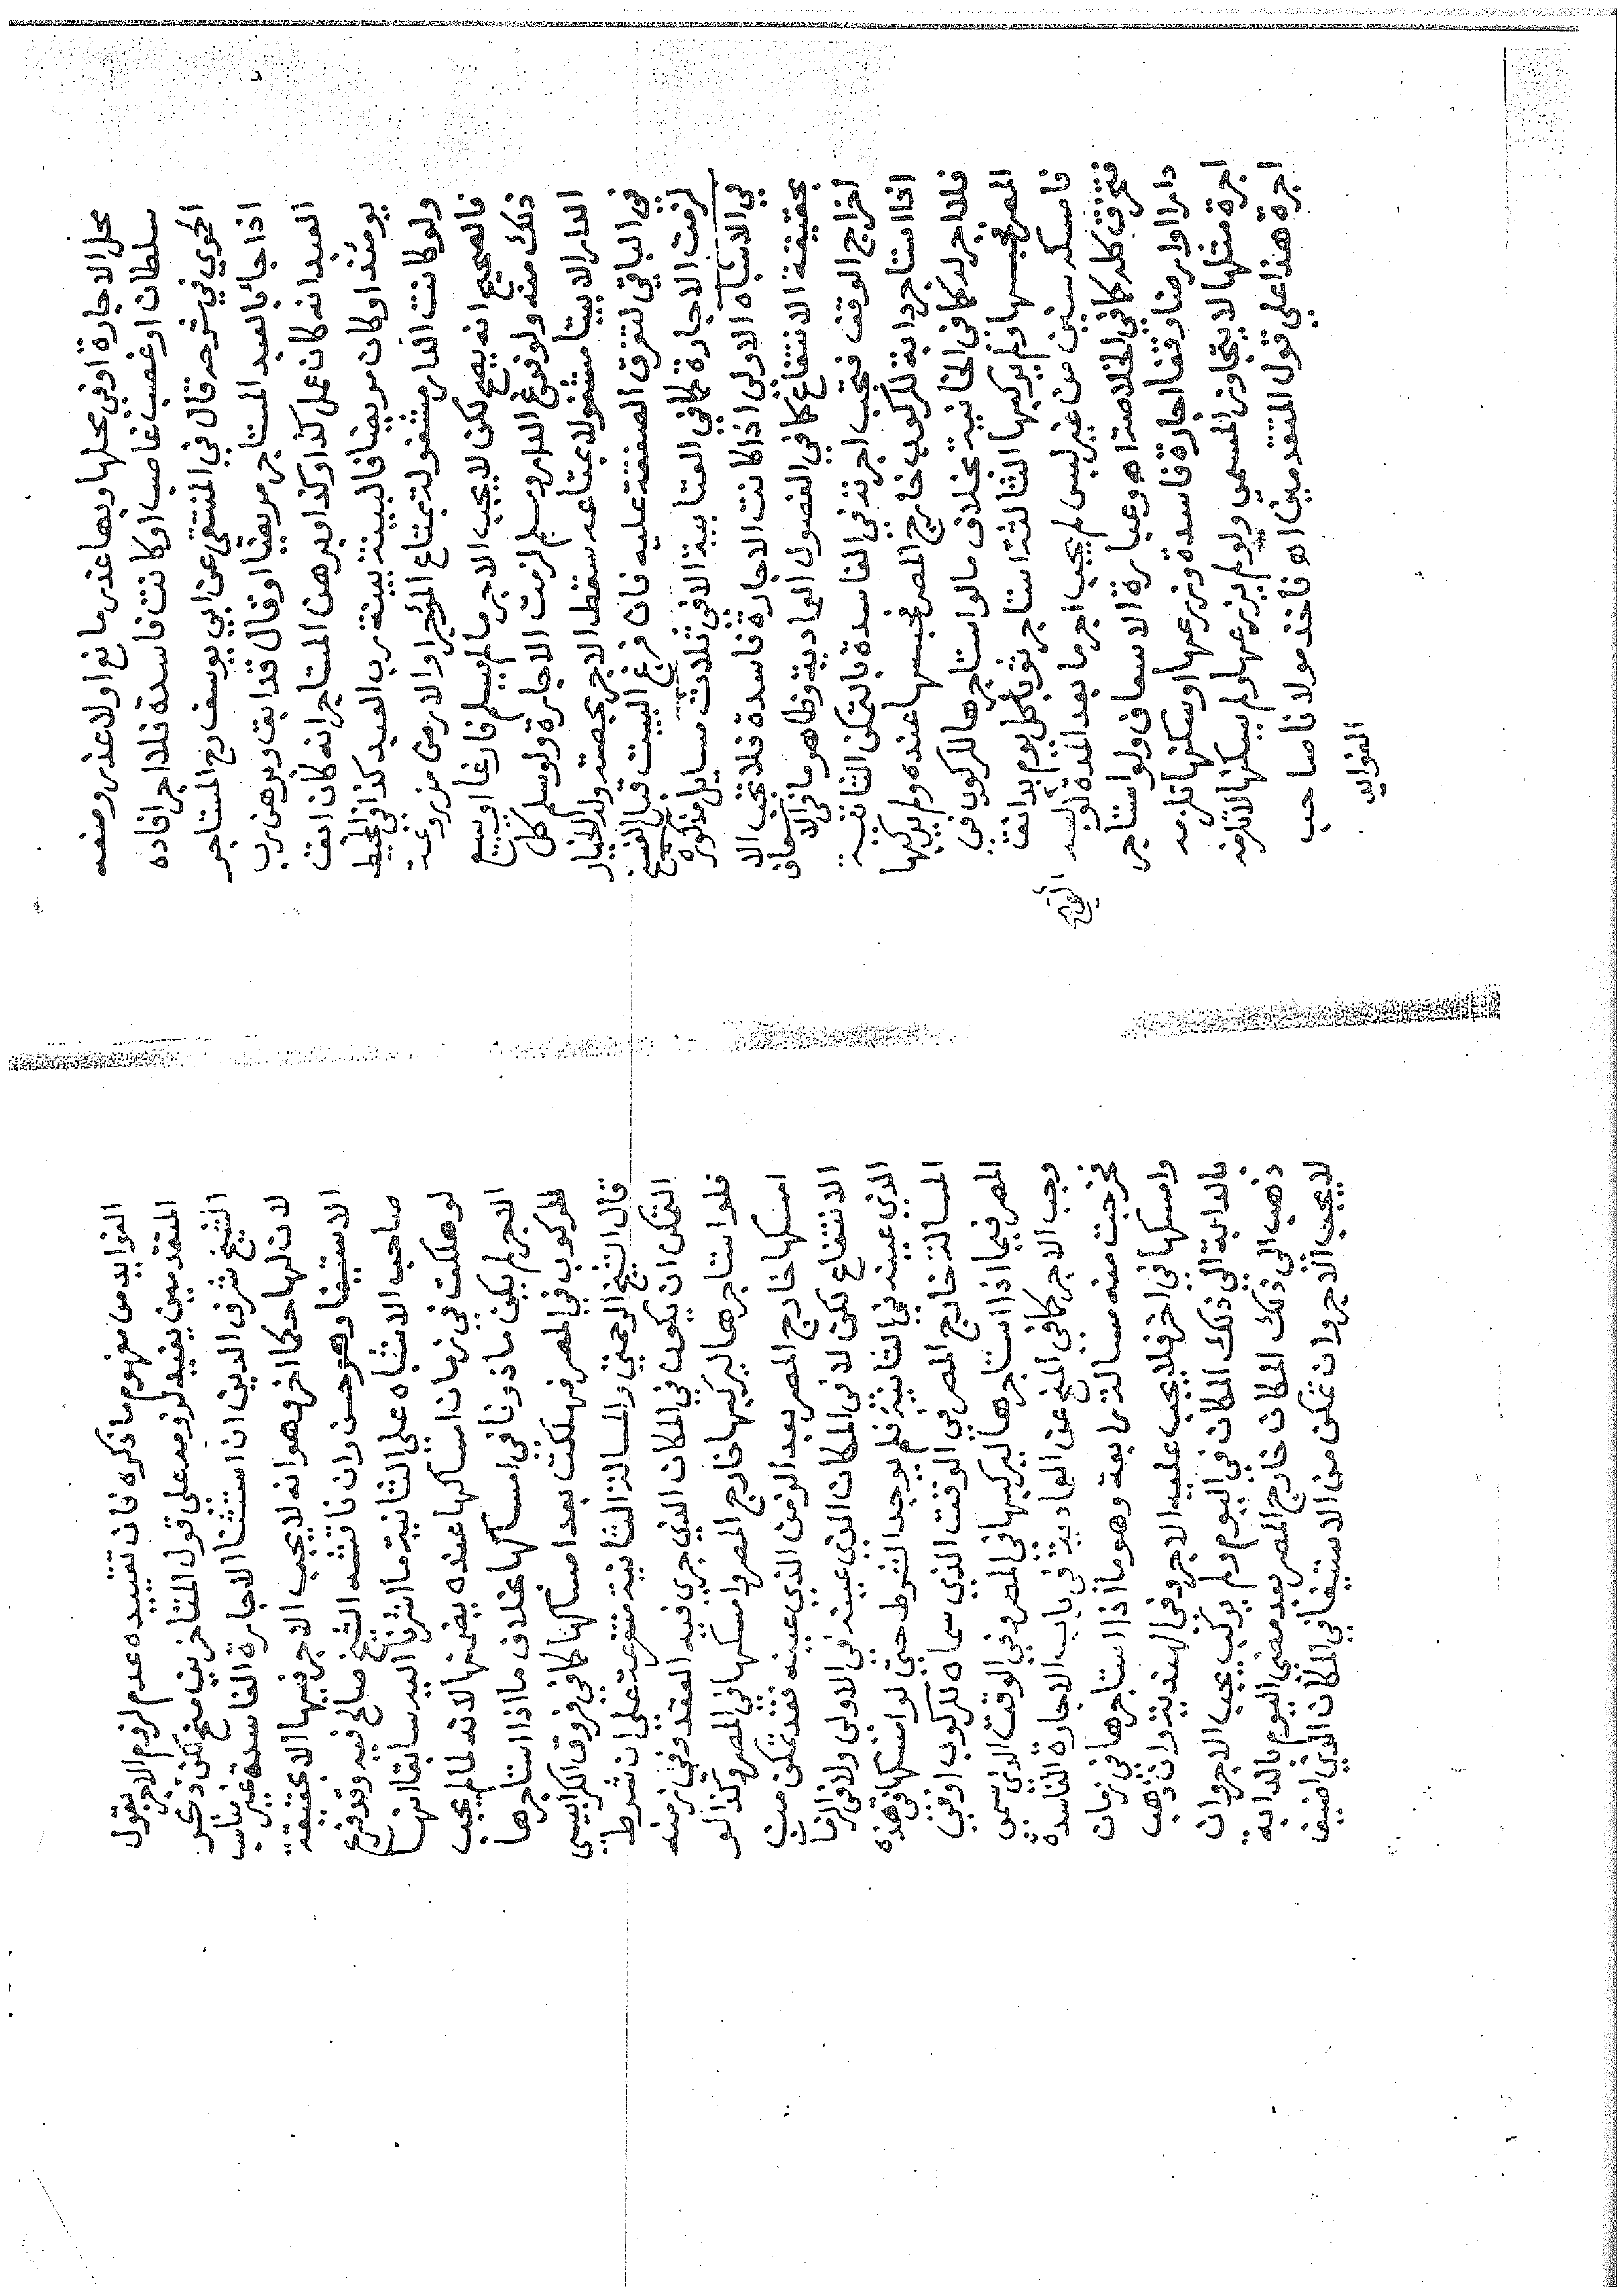 محل الاجارة او في محلها وبها عذر مانع او لا عذر ومنعه
سلطان او غصب غاصب او كانت فاسدة فلا اجر افاده
الحموي في شرحه قال في المنتقى عن ابي يوسف رح المستاجر
اذا جا بالعبد المستاجر مريضا او قال قد ابق وبرهن رب
العبد انه كان عمل كذا وكذا وبرهن المستاجر انه كان ابق
يومئذ او كان مريضا فالبينة بينة رب العبد كذا في المحيط
ولو كانت الدار مشغولة بمتاع المؤجر او الارض مزروعة
فالصحيح انه يصح لكن لا يجب الاجر ما لم يسلم فارغا او يبيع
ذلك منه ولو فرغ الدار وسلم لزمت الاجارة ولو سلم كل
الدار الا بيتا مشغولا بمتاعه سقط الاجر بحصته وله الخيار
في الباقي لتفرق الصفقة عليه فان فرغ البيت قبل الفسخ
لزمت الاجارة كما في العتابية الا في ثلاث مسايل مذكورة
في الاشباه الاولى اذا كانت الاجارة فاسدة فلا تجب الا
بحقيقة الانتفاع كما في الفصول العمادية وظاهر ما في الاسعاف
اخراج الوقف فتجب اجرته في الفاسدة بالتمكن الثانية
اذا استاجر دابة للركوب خارج المصر فحبسها عنده ولم يركبها
فلا اجر له كما في الخانية بخلاف ما لو استاجرها للركوب في
المصر فحبسها ولم يركبها الثالثة استاجر ثوبا كل يوم بدانق
فامسكه سنين من غير لبس لم يجب اجر ما بعد المدة لو لبسه
فتخرق كله كما في الخلاصة اه وعبارة الاسعاف ولو استاجر
دارا او ارضا وقفا اجارة فاسدة وزرعها او سكنها تلزمه
اجرة مثلها لا يتجاوز المسمى ولو لم يزرعها ولم يسكنها لا تلزمه
اجرة هذا على قول المتقدمين اه فاخذ مولانا صاحب
الفوايد
الفوايد من مفهوم ما ذكره فان تقييده عدم لزوم الاجر بقول
المتقدمين يفيد لزومه على قول المتاخرين منح لكن ذكر
الشيخ شرف الدين ان استثنا الاجارة الفاسدة غير مناسب
لان لها حكما اخر وهو انه لا يجب الاجر فيها الا بحقيقة
الاستيفا وهو حسن وان ناقشه الشيخ صالح فيه وقد فرع
صاحب الاشباه على الثانية ما اشرنا اليه سابقا انها
لو هلكت في زمان امساكها عنده يضمنها لانه لما لم يجب
الاجر لم يكن ماذونا في امساكها بخلاف ما اذا استاجرها
للركوب في المصر فهلكت بعد امساكها كما في فروق الكرابيسي
قال الشيخ الرحمتي والمسالة الثانية متفرعة على ان شرط
التمكن ان يكون في المكان الذي جرى فيه العقد وفي زمنه
فلو استاجرها ليركبها خارج المصر وامسكها في المصر وكذا لو
امسكها خارج المصر بعد الزمن الذي عينه فقد تمكن من
الانتفاع لكن لا في المكان الذي عينه في الاولى ولا في الزمان
الذي عينه في الثانية فلم يوجد الشرط حتى لو امسكها في هذه
المسالة خارج المصر في الوقت الذي سماه للركوب او في
المصر فيما اذا استاجرها ليركبها في المصر وفي الوقت الذي سمى
وجب الاجر كما في المنح عن العمادية في باب الاجارة الفاسدة
فخرجت منه مسالة رابعة وهو ما اذا استاجرها في زمان
وامسكها في اخر فلا يجب عليه الاجر وفي الهندية وان ذهب
بالدابة الى ذلك المكان في اليوم ولم يركب يجب الاجر وان
ذهب الى ذلك المكان خارج المصر بعد مضي اليوم بالدابة
لا يجب الاجر وان تمكن من الاستيفا في المكان الذي اضيف